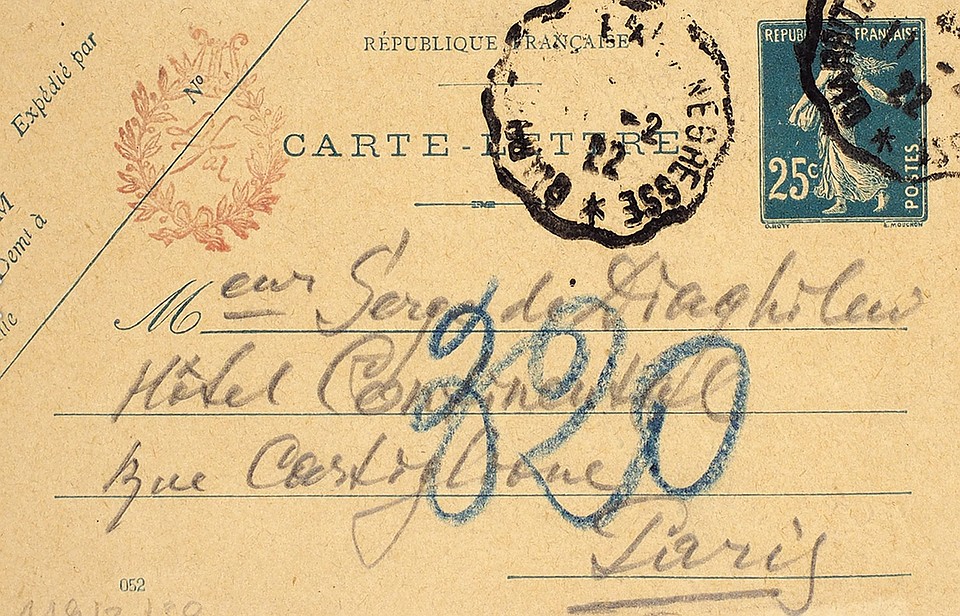 Expédié par
Nº
M
Demt à
RÉPUBLIQUE FRANÇAISE
CARTE-LETTRE
NEGRESSE
-2
22
RÉPUBLIQUE FRANÇAISE
25c
POSTES
O. ROTY
E. MOUCHON
22
Meur Serge de Diaghilew
Hôtel Continental
Rue Castiglione
Paris
320
052